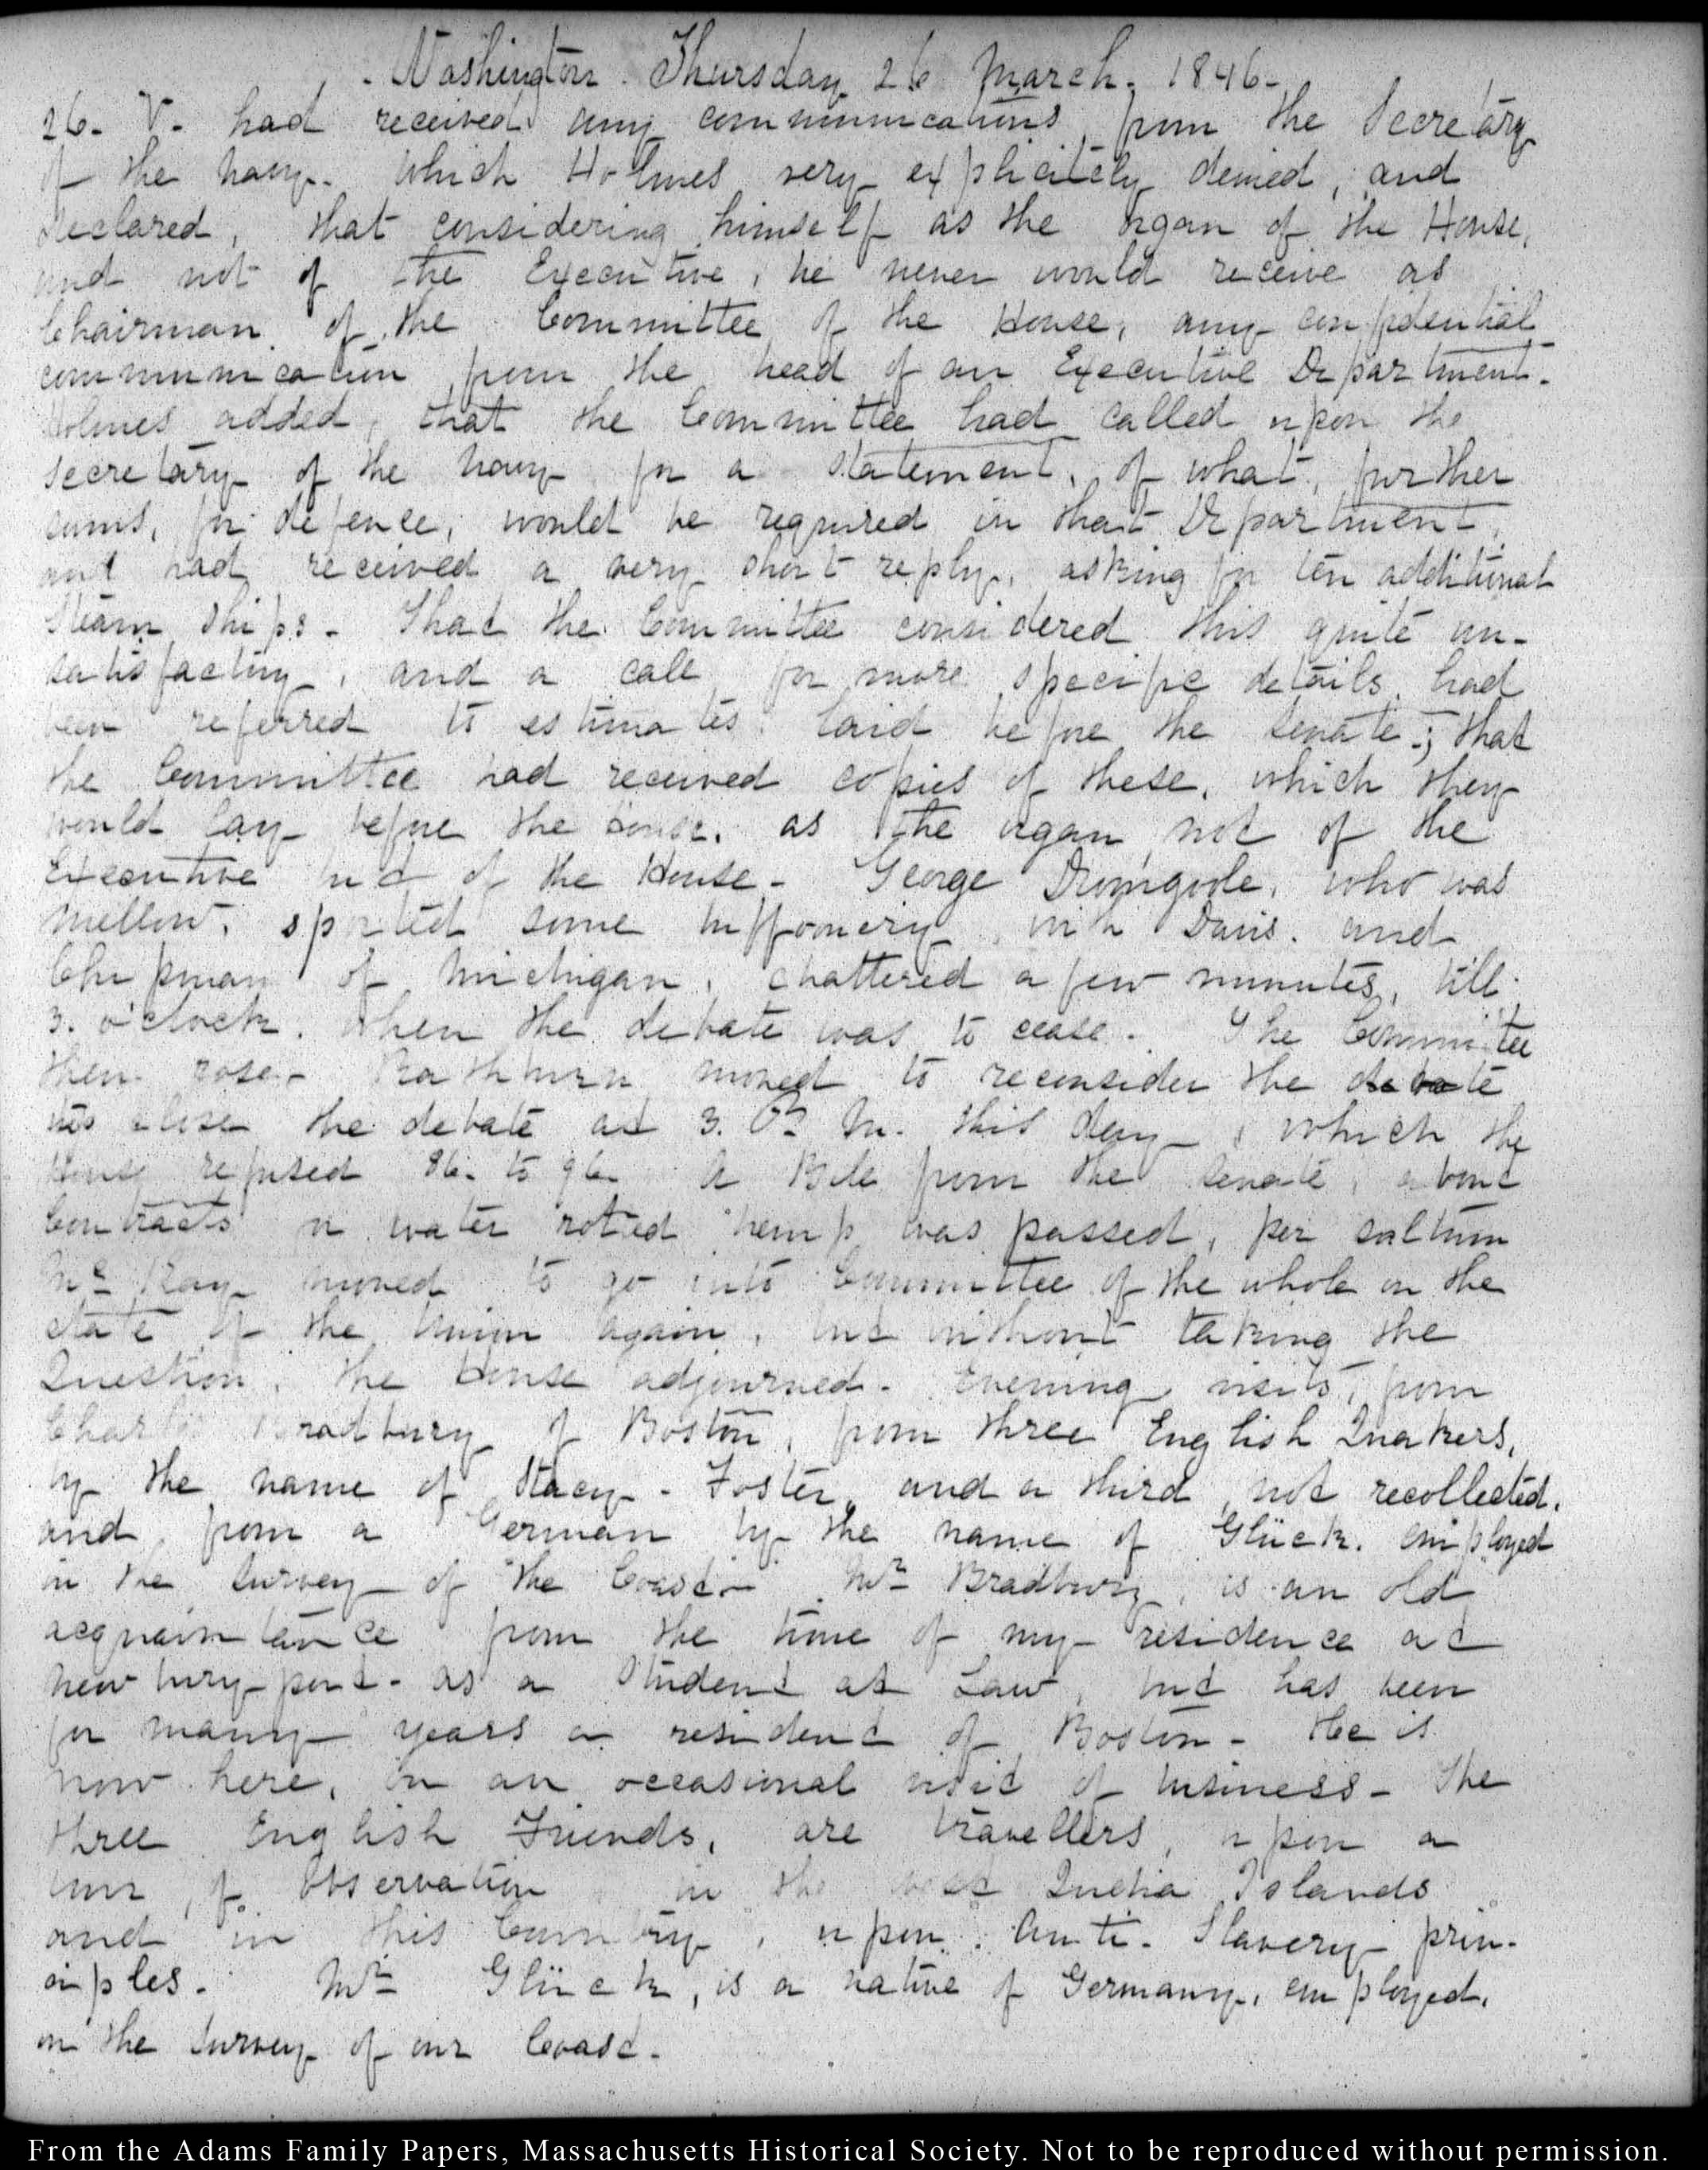 Washington. Thursday 26 March. 1846.
26. V. had received any communications, from the Secretary
of the Navy. which Holmes very explicitely denied, and
declared, that considering himself as the organ of the House,
and not of the Executive, he never would receive as
Chairman of the Committee of the House, any confidential
communication from the head of an Executive Department.
Holmes added, that the Committee had called upon the
Secretary of the Navy for a statement, of what, further
sums, for defence, would be required in that Department,
and had received a very short reply, asking for ten additional
Steam Ships. That the Committee considered this quite un-
satisfactory, and a call for more specific details, had
been referred to estimates laid before the Senate; that
the Committee had received copies of these, which they
would lay before the House. as the organ, not of the
Executive but of the House. George Dromgoole, who was
mellow, sported some buffoonery with Davis. and
Chipman of Michigan, chattered a few minutes, till
3. o'clock. when the debate was to cease. The Committee
then rose. Rathbun moved to reconsider the debate
to close the debate at 3. P. M. this day, which the
House refused 86. to 96. A Bill from the Senate, about
Contracts in water rotted hemp was passed, per saltum
Mr. Kay moved to go into Committee of the whole on the
state of the Union again, but without taking the
Question, the House adjourned. Evening visits, from
Charles Bradbury of Boston, from three English Quakers,
by the name of Stacy. Foster, and a third, not recollected.
and, from a German by the name of Glück. employed
in the Survey of the Coast. Mr. Bradbury, is an old
acquaintance from the time of my residence at
Newbury-port. as a Student at Law, but has been
for many years a resident of Boston. He is
now here, on an occasional visit of business. The
three English Friends, are travellers, upon a
tour, of observation in the West India Islands
and in this Country, upon Anti-Slavery prin-
ciples. Mr. Glück, is a native of Germany, employed,
on the Survey of our Coast.
From the Adams Family Papers, Massachusetts Historical Society. Not to be reproduced without permission.